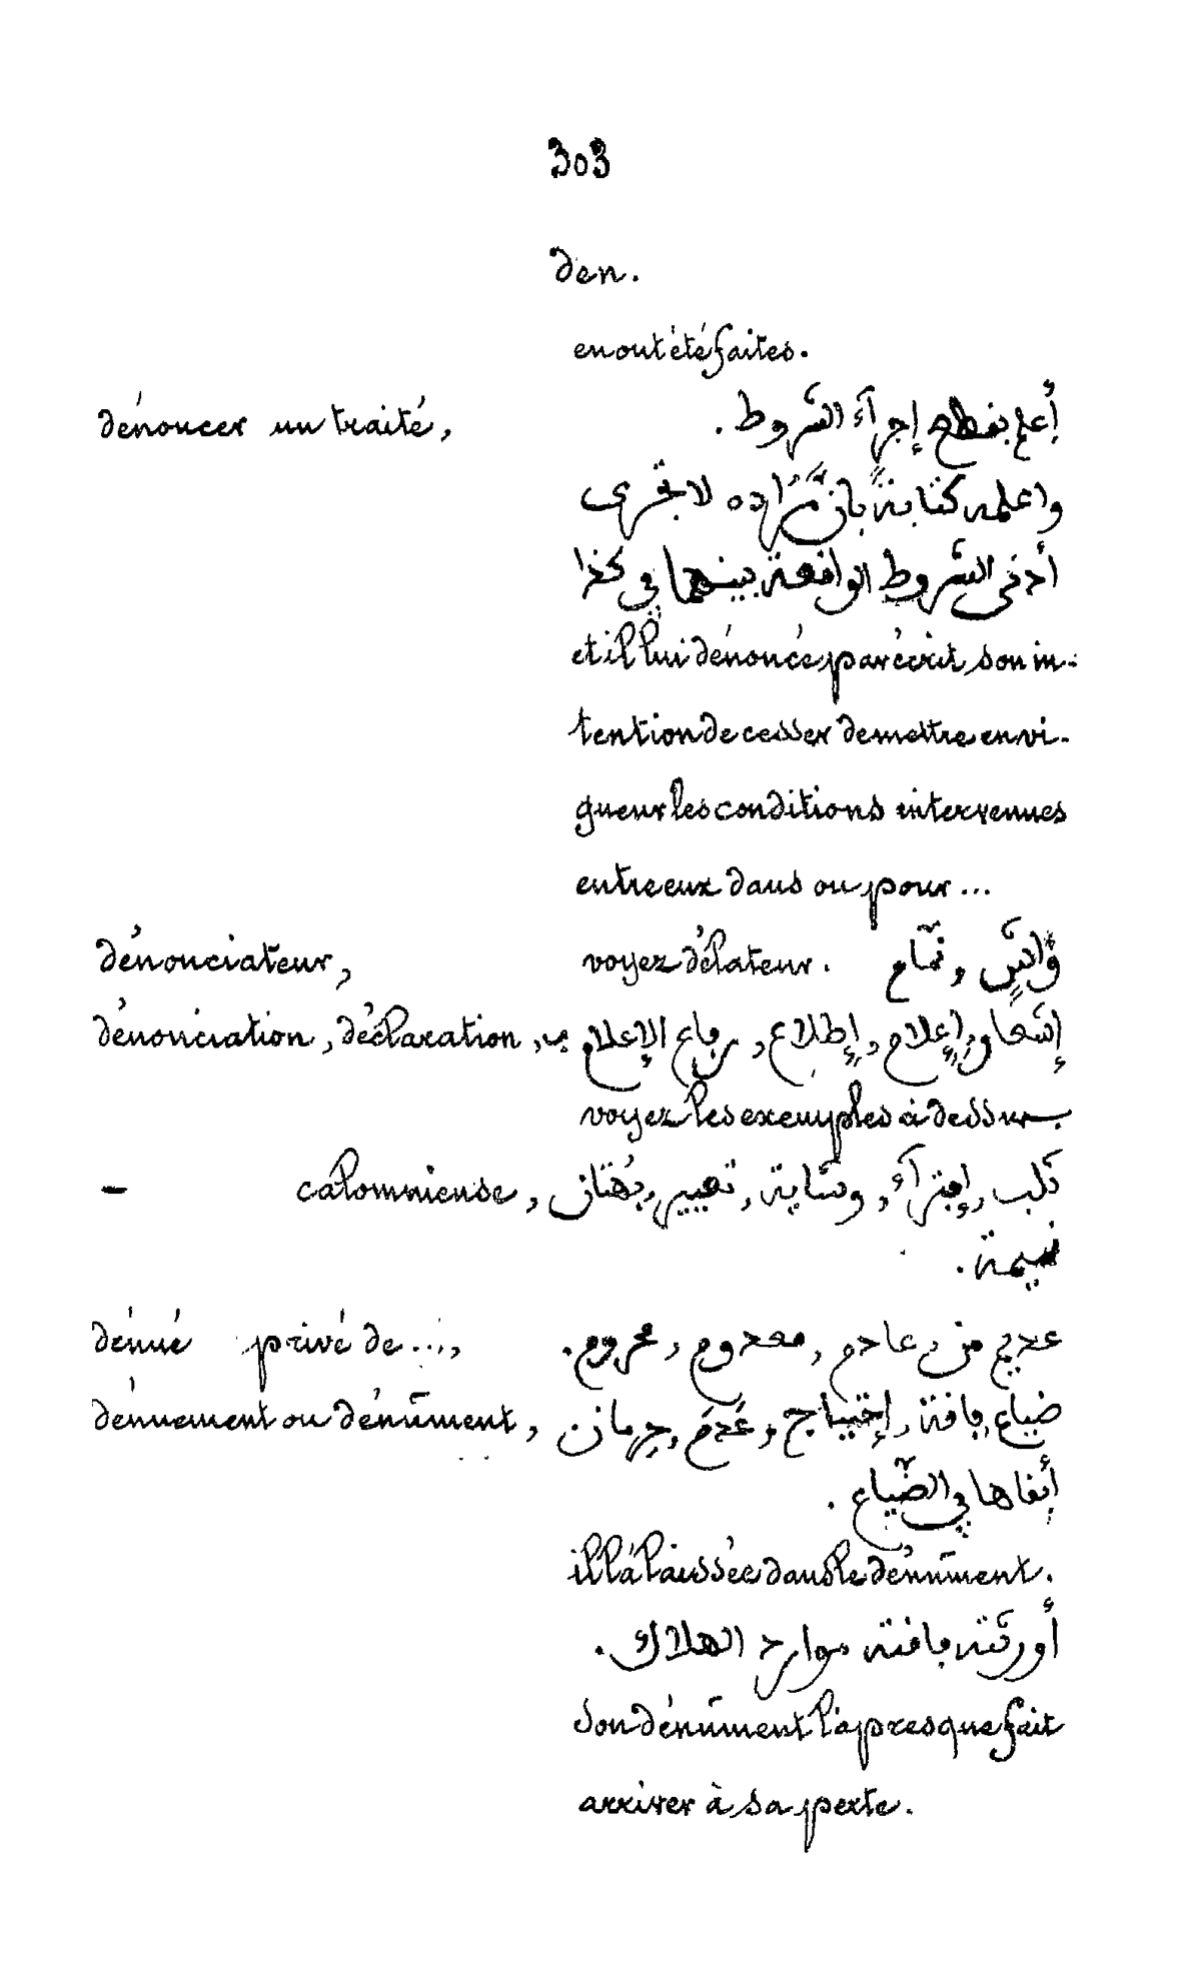 303
den.
en ont été faites.
dénoncer un traité, أعلم بقطع إجرآء الشروط.
واعلمه كتابةً بانّ مُرَاده لا تجرى
أدنى الشروط الواقعة بينهما في كذا
et il lui dénonce par écrit, son in-
tention de cesser de mettre en vi-
gueur les conditions intervenues
entre eux dans ou pour ...
dénonciateur, voyez délateur. وَاشٍ, نمّام
dénonciation, déclaration, إشعار, إعلام, إطلاع, رفاع الإعلام ب
voyez les exemples à dessus
— calomnieuse, إفترآء, وشاية, تعيير, بُهْتان
نميمة.
dénué privé de ..., عديم من, عادم, معدوم, محروم.
dénuement ou dénûment, ضياع, فاقة, إحتياج, عَدَم, حرمان
أبقاها في الضّياع.
il l'a laissée dans le dénûment.
أورثته فاقته موارد الهلاك.
son dénûment l'a presque fait
arriver à sa perte.